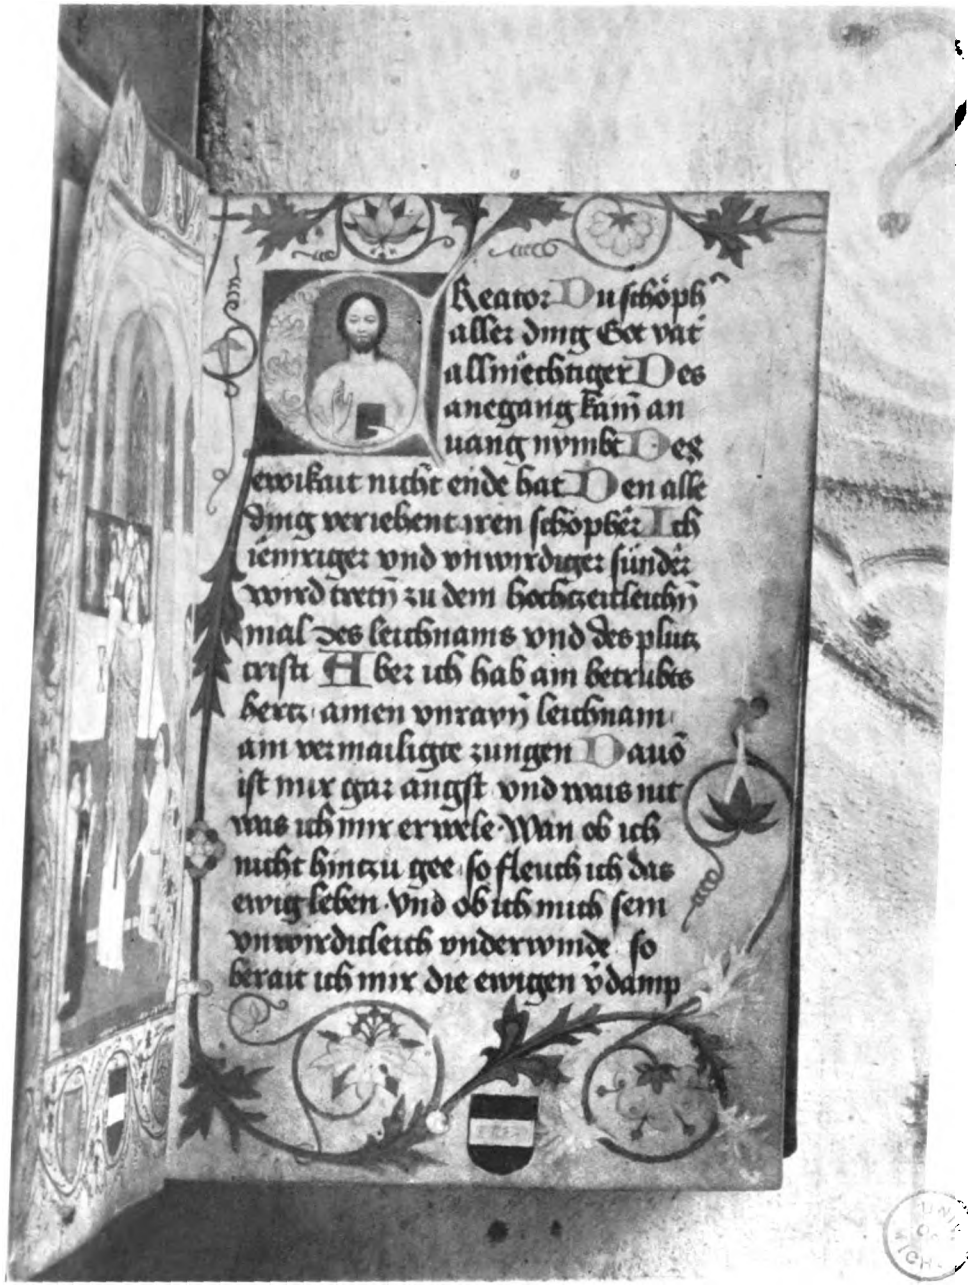 Kreator Du schöph᷑
aller ding Got vat᷑
allmëchtiger Des
anegang kain̄ an
uang nymbt Des
ewikait nicht ende hat Den alle
ding veriehent iren schöpher Ich
iëmriger vnd vnwirdiger sünder
wird tretn̄ zu dem hochtzeitleichn̄
mal des leichnams vnd des plutz
cristi Aber ich hab ain betrubts
hertz ainen vnrayn̄ leichnam
ain vermailigte zungen Dauō
ist mir gar angst vnd wais nit
was ich mir erwele Wan ob ich
nicht hintzu gee so fleuch ich das
ewig leben Vnd ob ich mich sein
vnwirdicleich vnderwinde so
berait ich mir die ewigen v̄damp
UNIV.
OF
MICH.